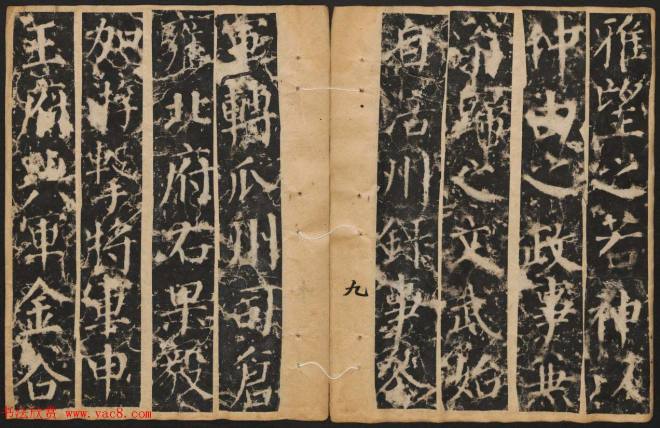 雅望之若神以
仲由之政事
翁歸之文武始
自川録事參
九
軍轉瓜州司倉
雍北府右果毅
加游擊將軍申
王府典軍金谷
书法欣赏 www.yac8.com